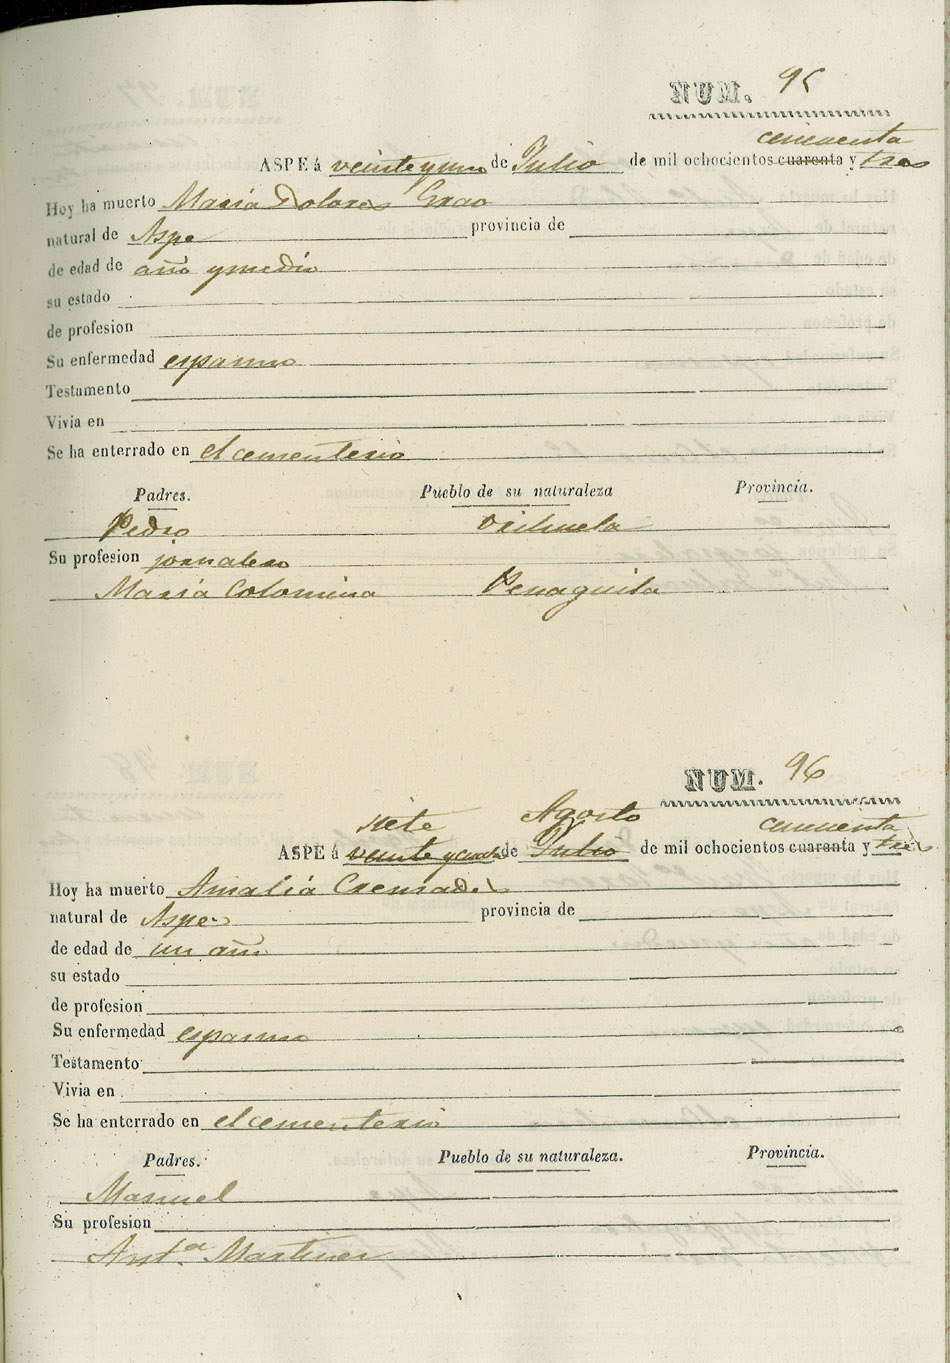 NUM. 95
cincuenta
ASPE á veinte y uno de Julio de mil ochocientos cuarenta y tres
Hoy ha muerto Maria Dolores Erao
natural de Aspe provincia de
de edad de año y medio
su estado
de profesion
Su enfermedad espasmo
Testamento
Vivia en
Se ha enterrado en el cementerio
Padres. Pueblo de su naturaleza Provincia.
Pedro Orihuela
Su profesion jornalero
Maria Colomina Penaguila
NUM. 96
siete Agosto cincuenta
ASPE á veinte y cuatro de Julio de mil ochocientos cuarenta y tres
Hoy ha muerto Amalia Cremades
natural de Aspe provincia de
de edad de un año
su estado
de profesion
Su enfermedad espasmo
Testamento
Vivia en
Se ha enterrado en el cementerio
Padres. Pueblo de su naturaleza. Provincia.
Manuel
Su profesion
Antª Martinez